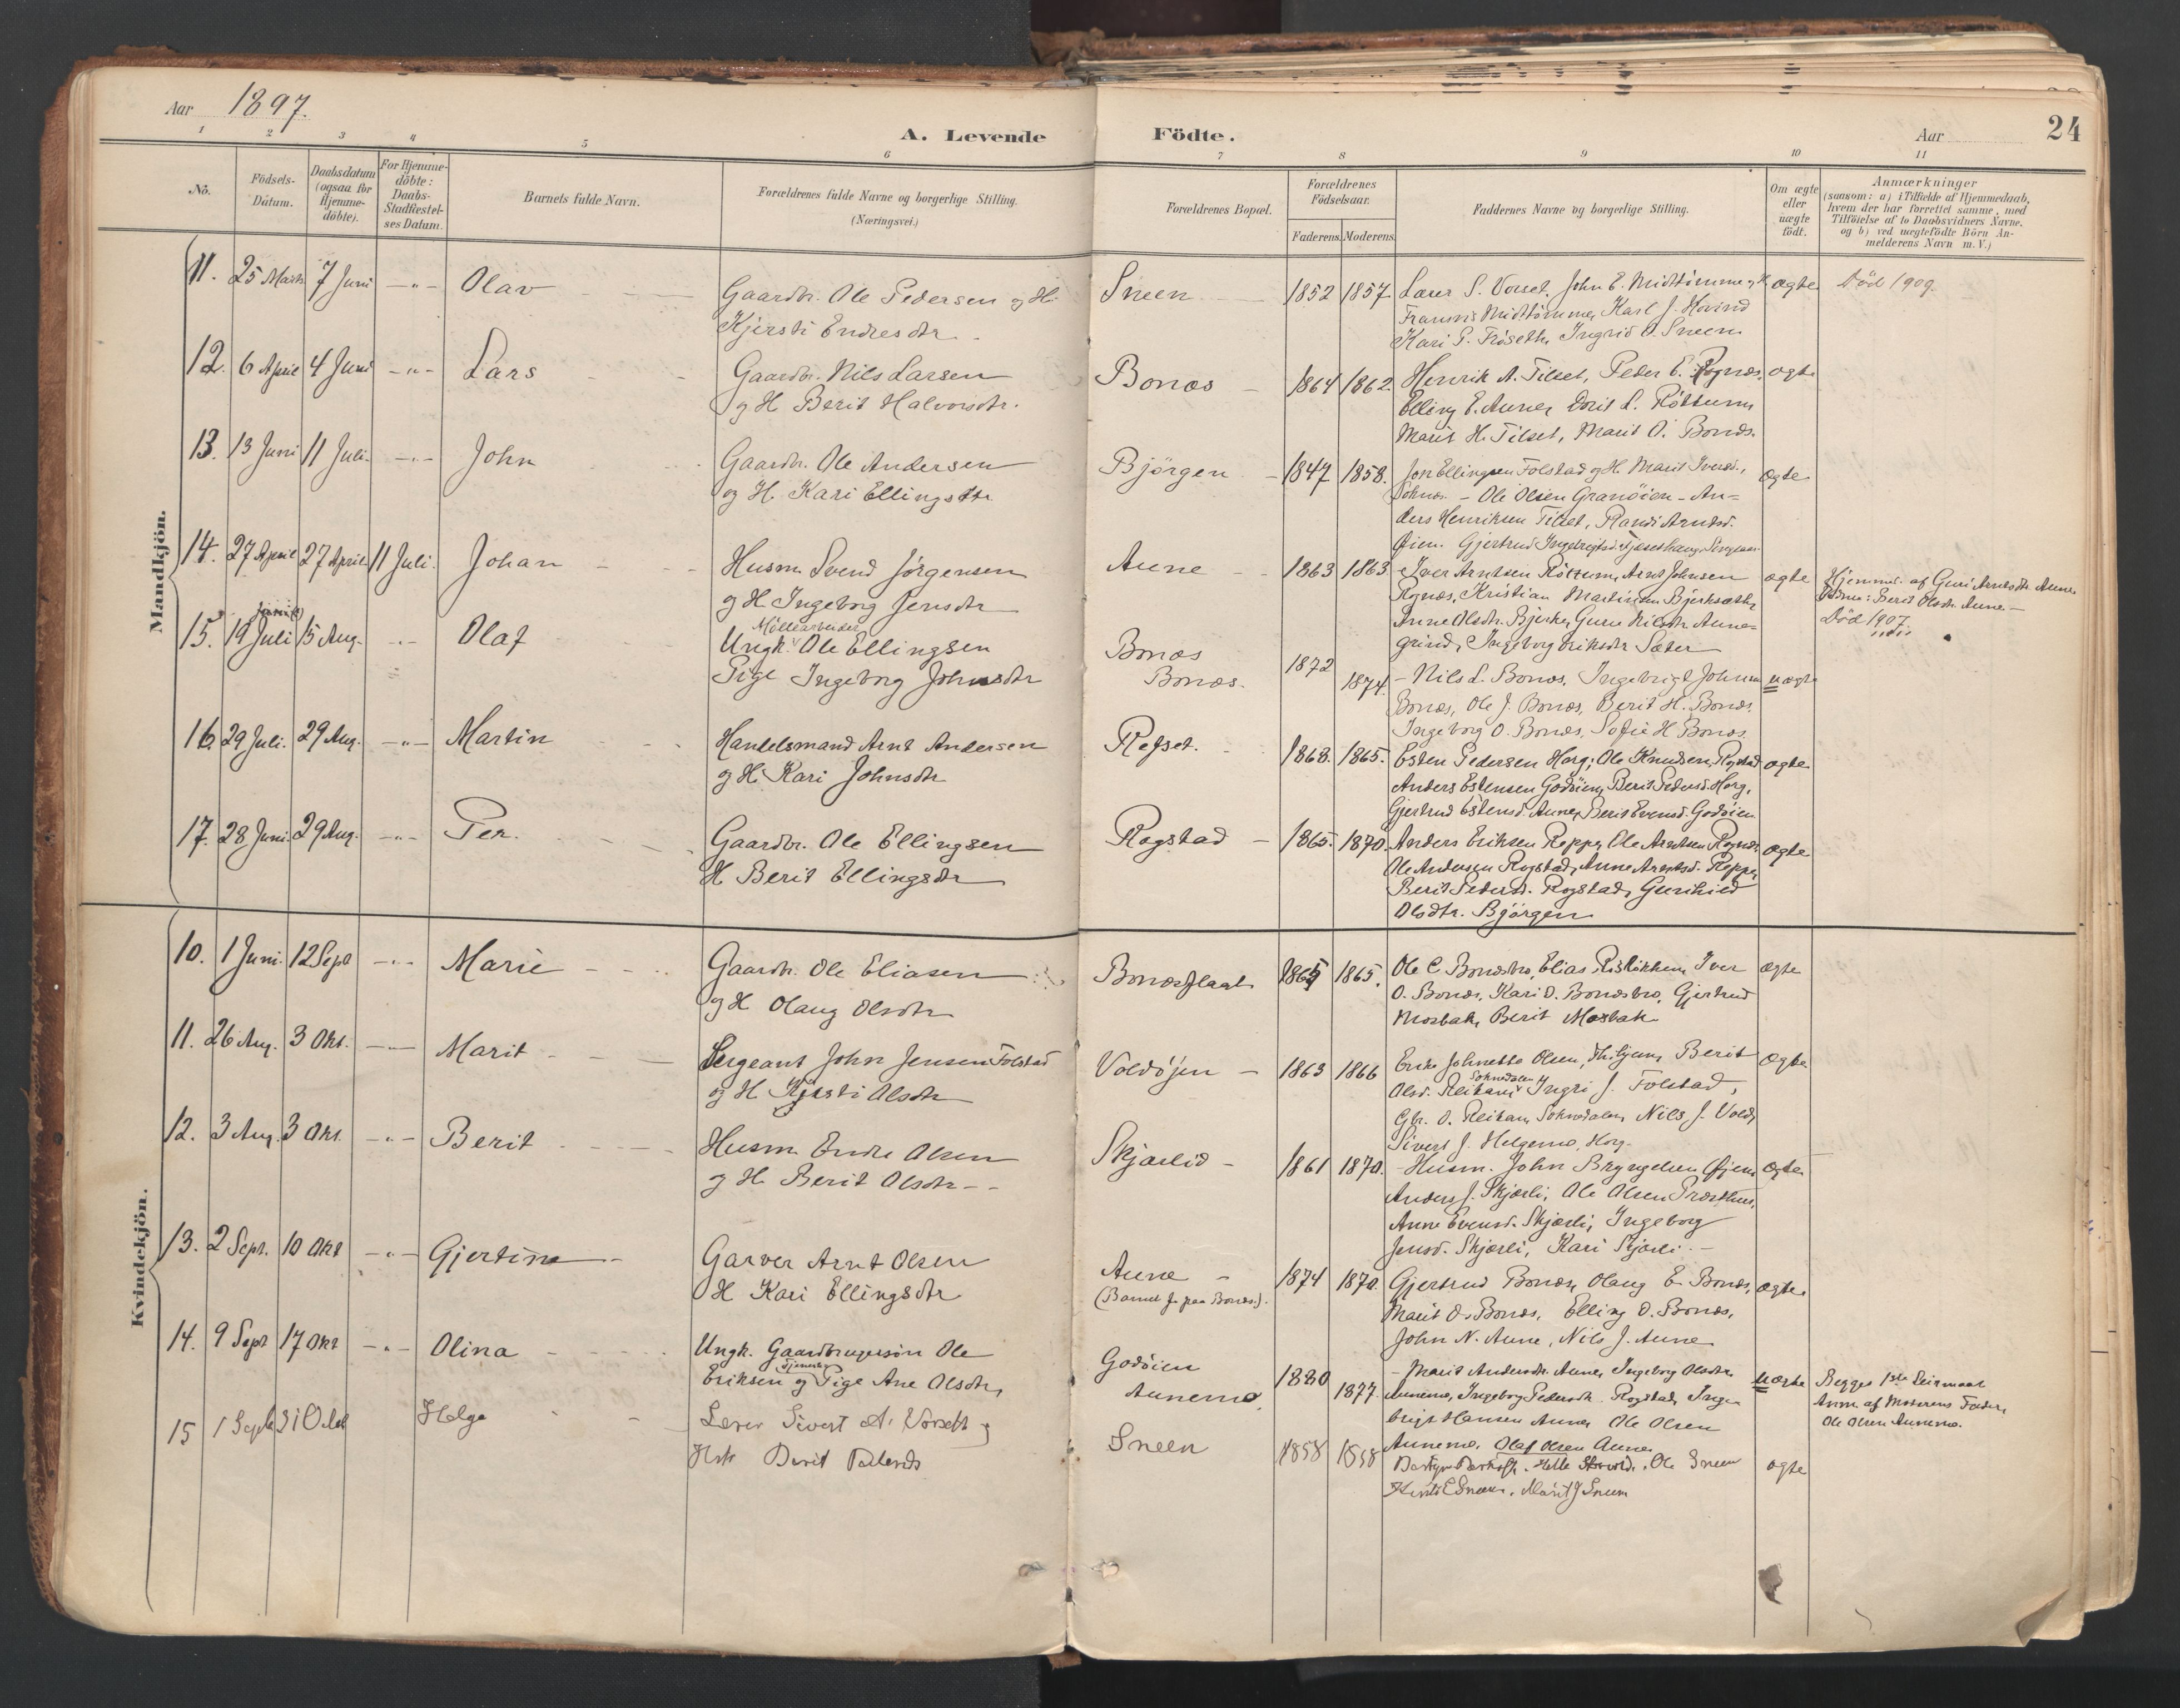 Aar 1897.
A. Levende Födte.
Aar
24
1 2 3 4 5 6 7 8 9 10 11
No.
Födsels-Datum.
Daabsdatum (ogsaa for Hjemme-döbte).
For Hjemme-döbte: Daabs-Stadfæstel-ses Datum.
Barnets fulde Navn.
Forældrenes fulde Navne og borgerlige Stilling.
(Næringsvei.)
Forældrenes Bopæl.
Forældrenes Födselsaar.
Faderens. Moderens.
Faddernes Navne og borgerlige Stilling.
Om ægte eller uægte födt.
Anmærkninger
(saasom: a) i Tilfælde af Hjemmedaab,
hvem der har forrettet samme, med
Tilföielse af to Daabsvidners Navne.
og b) ved uægtefödte Börn An-
melderens Navn m. V.)
Mandkjön.
11. 25 Marts 7 Juni -"- Olav
Gaardbr. Ole Pedersen og H.
Kjersti Endresdtr.
Sneen 1852 1857
Lærer S. Vorset, John E. Midttömme
Midttömme, Karl J. Kovind
Kari P. Fröseth, Ingrid O. Sneen
ægte Död 1909.
12. 6 April 4 Juni -"- Lars
Gaardbr. Nils Larsen
og H. Berit Halvorsdtr.
Bonæs 1864 1862.
Henrik A. Tilset, Peder E. Rognæs,
Elling E. Aune, Dorit L. Röttum
Marit H. Tilset, Marit O. Bonæs.
ægte
13. 13 Juni 11 Juli. -"- John
Gaardbr. Ole Andersen
og H. Kari Ellingsdtr
Björgen 1847 1858.
Jon Ellingsen Folstad og H. Marit Iversd.,
Soknes. - Ole Olsen Granöien - An=
ders Henriksen Tilset, Randi Arntsd.
Öien. Gjertrud
ægte
14. 27 April 27 April 11 Juli. Johan
Husm. Svend Jörgensen
og H. Ingeborg Jensdtr
Aune 1863 1863
Iver Arntsen Röttum, Arnt Johnsen
Rognæs, Kristian Martinsen Bjerksæth,
Anne Olsdtr. Bjerke, Guru Nilsdtr Aune=
grind, Ingeborg Eriksdtr Sæter
ægte
Hjemmed. af Guri Arntsdtr Aune
Berit Olsdtr. Aune.
Död 1907.
15. 19 Juli 15 Aug. -"- Olaf
Möllearbeider
Ungk. Ole Ellingsen
Pige Ingeborg Johnsdtr
Bonæs
Bonæs.
1872
1874.
Nils L. Bonæs, Ingebrigt Johnsen
Bonæs, Ole J. Bonæs, Berit H. Bonæs.
Ingeborg O. Bonæs, Sofie H. Bonæs.
uægte
16. 29 Juli. 29 Aug. -"- Martin
Handelsmand Arnt Andersen
og H. Kari Johnsdtr
Refset. 1868. 1865.
Esten Pedersen Horg, Ole Knudsen, Rogstad
Anders Estensen Godöien, Berit Pedersd. Horg,
Gjertrud Estensd. Aune, Berit Evensd. Godöien
ægte
17. 28 Juni. 29 Aug. -"- Per.
Gaardbr. Ole Ellingsen
H Berit Ellingsdtr
Rogstad 1865. 1870.
Anders Eriksen Reppe, Ole Arntsen Rognæs
Ole Andersen Rogstad, Anne Arntsd. Reppe,
Berit Pedersd. Rogstad, Gunhild
Olsdtr. Björgen
ægte
Kvindekjön.
10. 1 Juni. 12 Sept -"- Marie
Gaardbr. Ole Eliasen
og H Olaug Olsdtr
Bonæsflaat 1865 1865.
Ole C. Bonæsbro, Elias Iver
O. Bonæs, Kari O. Bonæsbro, Gjertrud
Mosbak, Berit Mosbak
ægte
11. 26 Aug. 3 Okt. Marit
Sergeant John Jensen Folstad
og H Kjersti Olsdtr
Voldöjen 1863 1866
Johnette Olsen, Berit
Olsd. Reitan, Soknedalen Ingri J. Folstad,
O. Reitan Soknedalen, Nils J. Vold,
Sivert J. Helgemo, Horg.
ægte
12. 3 Aug. 3 Okt. -"- Berit
Husm. Endre Olsen
og H. Berit Olsdtr
Skjærlid 1861 1870.
Husm. John Bryngelsen Öjen
Anders J. Skjærli, Ole Olsen Præsthus,
Anne Evensd. Skjærli, Ingeborg
Jensd. Skjærli, Kari Skjærli.
ægte
13. 2 Sept. 10 Okt -"- Gjertine
Garver Arnt Olsen
H Kari Ellingsdtr
Aune
(Barnet f. paa Bonæs).
1874 1870.
Gjertrud Bonæs, Olaug E. Bonæs,
Marit O. Bonæs, Elling O. Bonæs,
John N. Aune, Nils J. Aune
ægte
14. 9 Sept 17 Okt -"- Olina
Ungk. Gaardbrugersön Ole
Eriksen og Tjenest. Pige Ane Olsdtr,
Godöien
Aunemo
1880
1877.
Marit Andersdtr. Aune, Ingeborg Olsdtr
Aunemo, Ingeborg Pedersdtr. Rogstad, Inge-
brigt Hansen Aune, Ole Olsen
Aunemo, Olaf Olsen Aune
uægte
Begges 1ste Leiermaal
Anm. af Moderens Fader,
Ole Olsen Aunemo.
15 1 Sept 31 Okt Helga
Lærer Sivert A. Vorseth og
Hstr Berit
Sneen 1858 1858
Ole Sneen
Marit J Sneen
ægte